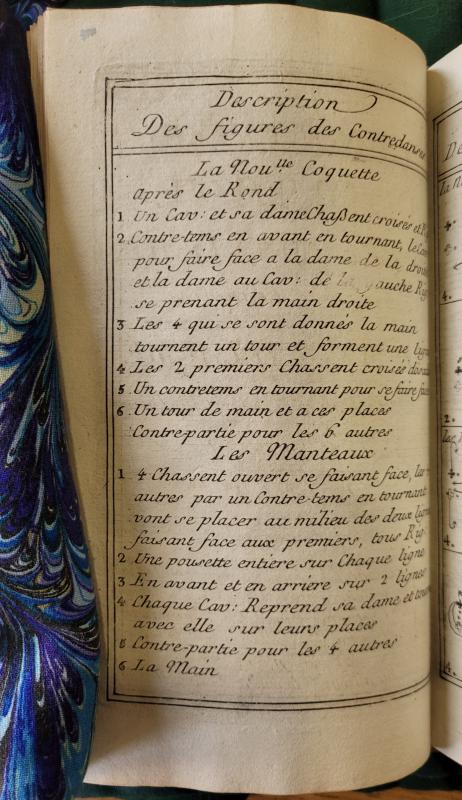 Description
Des figures des Contredanses
La Nou^lle Coquette
après le Rond
1 Un Cav: et sa dame Chaßent croisés et
2 Contre-tems en avant en tournant, le
pour faire face a la dame de la droite
et la dame au Cav: de la gauche
se prenant la main droite
3 Les 4 qui se sont donnés la main
tournent un tour et forment une ligne
4 Les 2 premiers Chassent croisée
5 Un contretems en tournant pour se faire face
6 Un tour de main et a ces places
Contre-partie pour les 6 autres
Les Manteaux
1 4 Chassent ouvert se faisant face, les
autres par un Contre-tems en tournant
vont se placer au milieu des deux lignes
faisant face aux premiers, tous Rig
2 Une pousette entiere sur Chaque ligne
3 En avant et en arriére sur 2 lignes
4 Chaque Cav: Reprend sa dame et
avec elle sur leurs places
5 Contre-partie pour les 4 autres
6 La Main
4.
4.
2.
4.
4.
4.